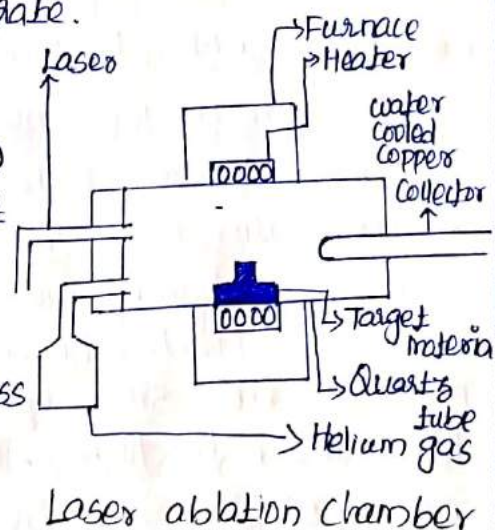 rate.
Furnace
Laser
Heater
water
cooled
copper
Collector
0000
0000
Target
materia
ss
Quartz
tube
Helium gas
Laser ablation chamber